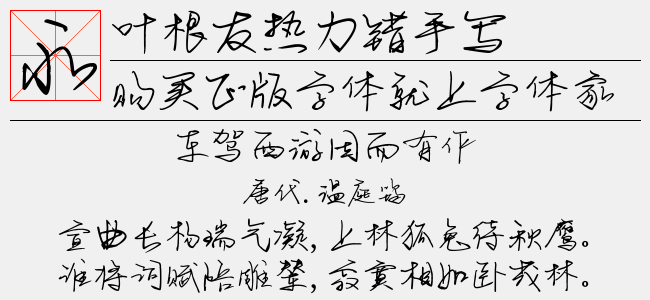 永
叶根友热力锴手写
购买正版字体就上字体家
车驾西游因而有作
唐代.温庭筠
宣曲长杨瑞气凝,上林狐兔待秋鹰。
谁将词赋陪雕辇,寂寞相如卧茂林。